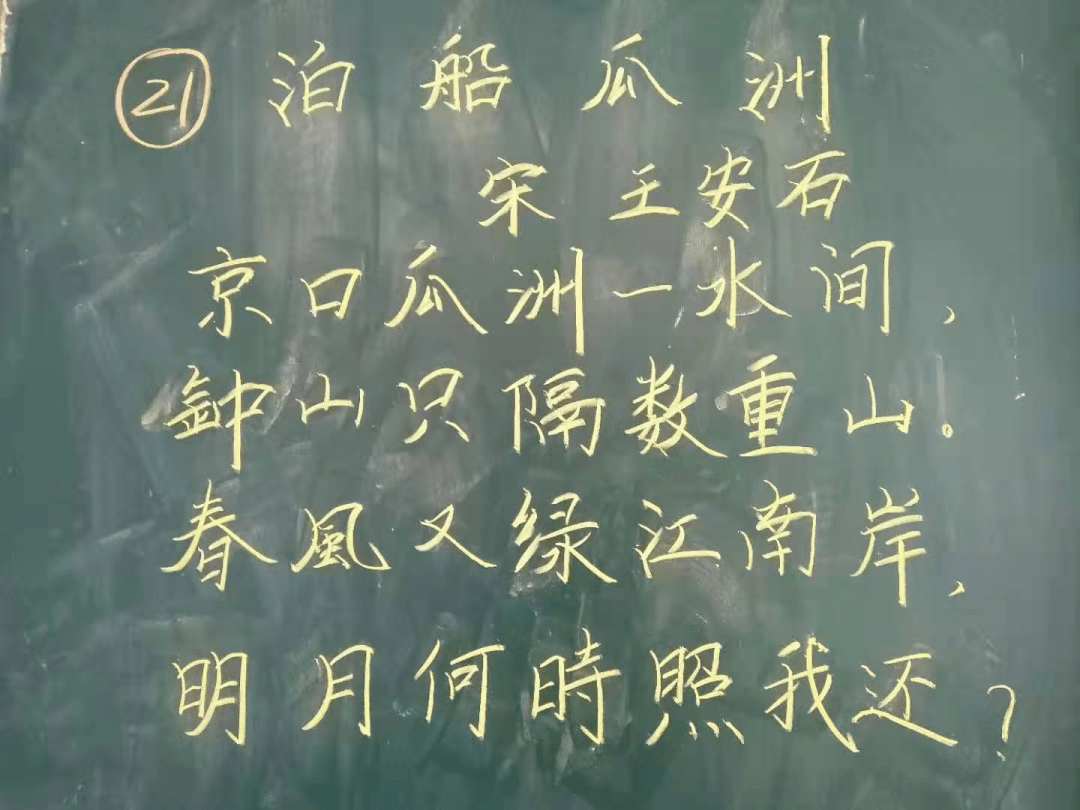 ㉑ 泊船瓜洲
宋 王安石
京口瓜洲一水间,
鈡山只隔数重山。
春風又绿江南岸,
明月何時照我还?